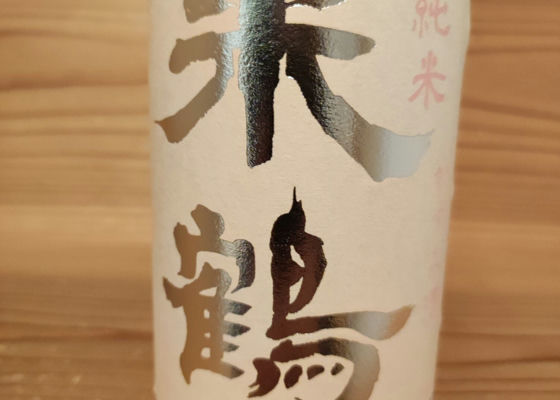 純米
米鶴